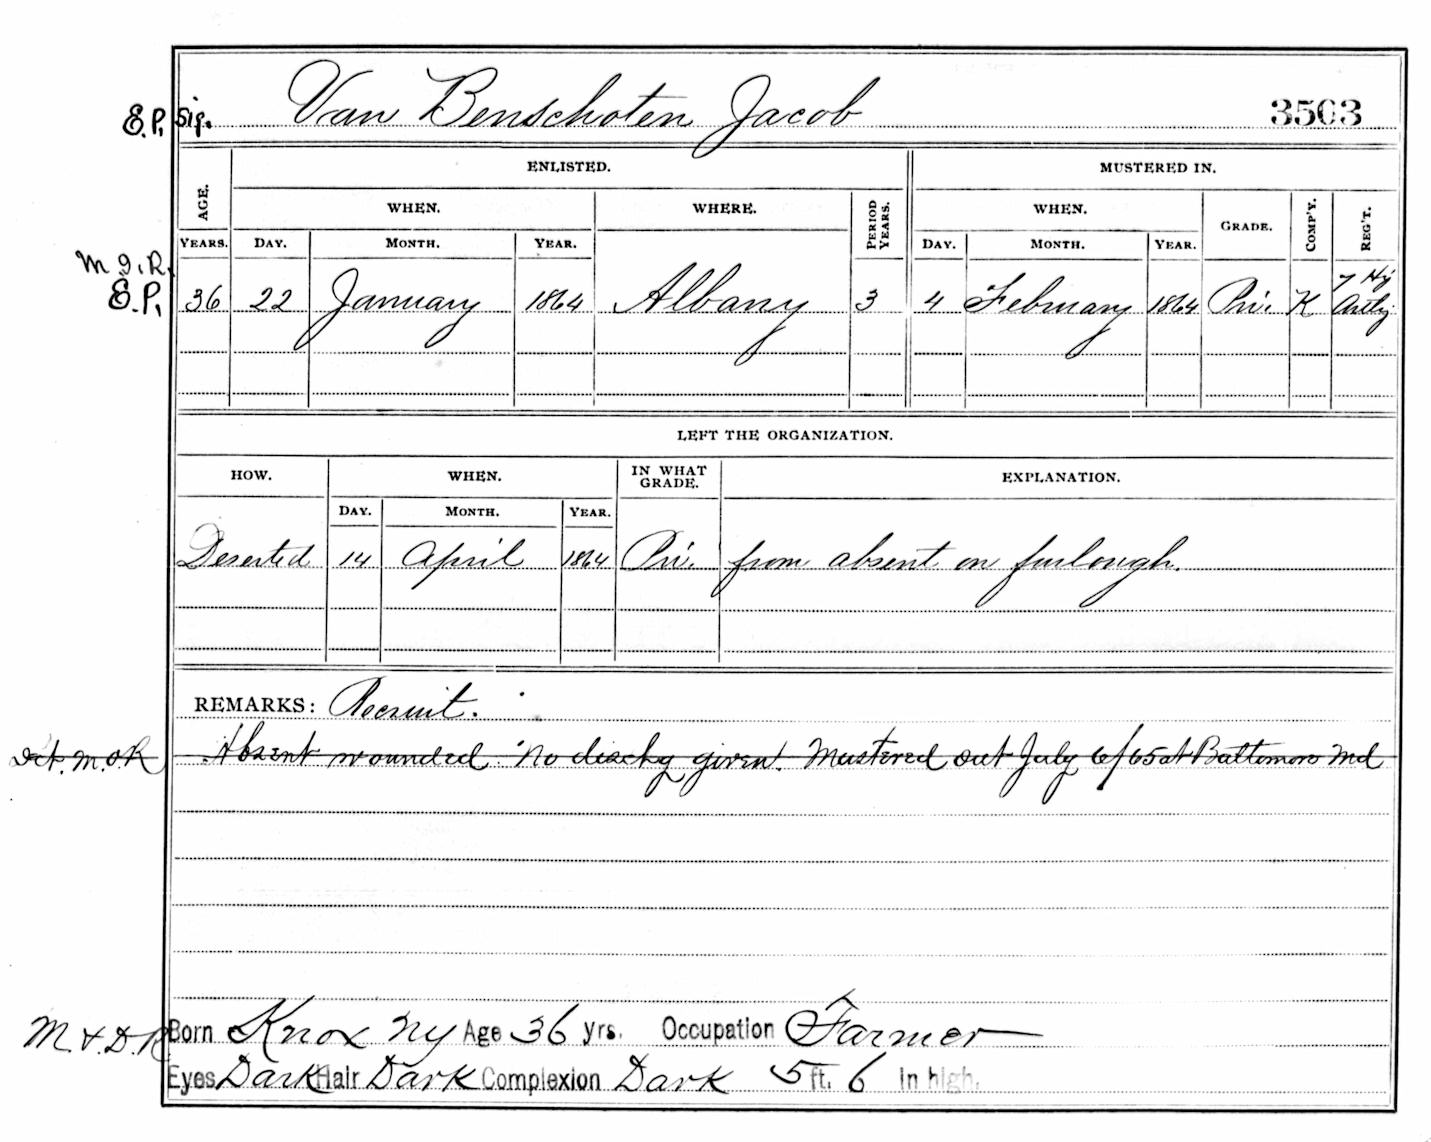 E.P. Sig. Van Benschoten Jacob 3503
ENLISTED. MUSTERED IN.
AGE. WHEN. WHERE. PERIOD YEARS. WHEN. GRADE. COMP'Y. REG'T.
YEARS. DAY. MONTH. YEAR. DAY. MONTH. YEAR.
M.I.R. 7 Hy
E.P. 36 22 January 1864 Albany 3 4 February 1864 Pri. K Artly
LEFT THE ORGANIZATION.
HOW. WHEN. IN WHAT GRADE. EXPLANATION.
DAY. MONTH. YEAR.
Deserted 14 April 1864 Pri. from absent on furlough.
REMARKS: Recruit.
Det. M.O.R. Absent wounded. No dischg given. Mustered out July 6/65 at Baltimore Md
M. & D. R. Born Knox NY Age 36 yrs. Occupation Farmer
Eyes Dark Hair Dark Complexion Dark 5 ft. 6 in high.